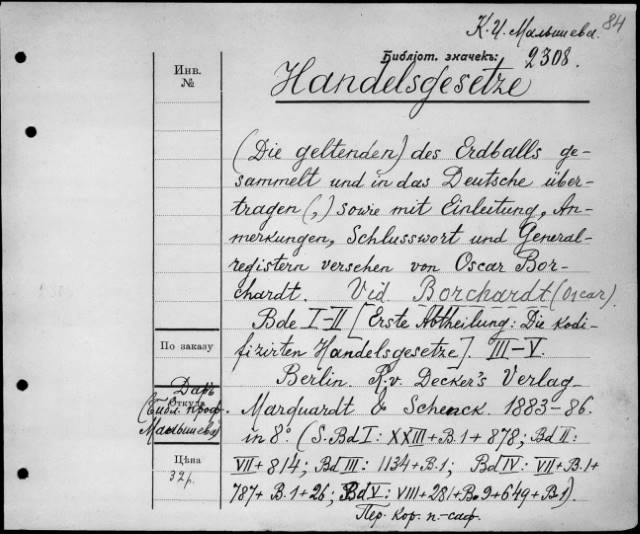 К. И. Малышева. 84
Библіот. значекъ:
2308.
Инв.
№
Handelsgesetze
(Die geltenden) des Erdballs ge-
sammelt und in das Deutsche über-
tragen (,) sowie mit Einleitung, An-
merkungen, Schlusswort und General-
registern versehen von Oscar Bor-
chardt. Vid. Borchardt (Oscar).
Bde I-II [Erste Abtheilung: Die kodi-
fizirten Handelsgesetze]. III-V.
Berlin. R. v. Decker's Verlag
Marquardt & Schenck. 1883-86.
in 8°. (S. Bd I: XXIII+B.1+878; Bd II:
VII+814; Bd III: 1134+B.1; Bd IV: VII+B.1+
787+B.1+26; Bd V: VIII+281+B.9+649+B.1).
Пер. кор. п.-саф.
По заказу
Даръ
Откуда
(Библ. проф.
Малышева)
Цѣна
32 р.